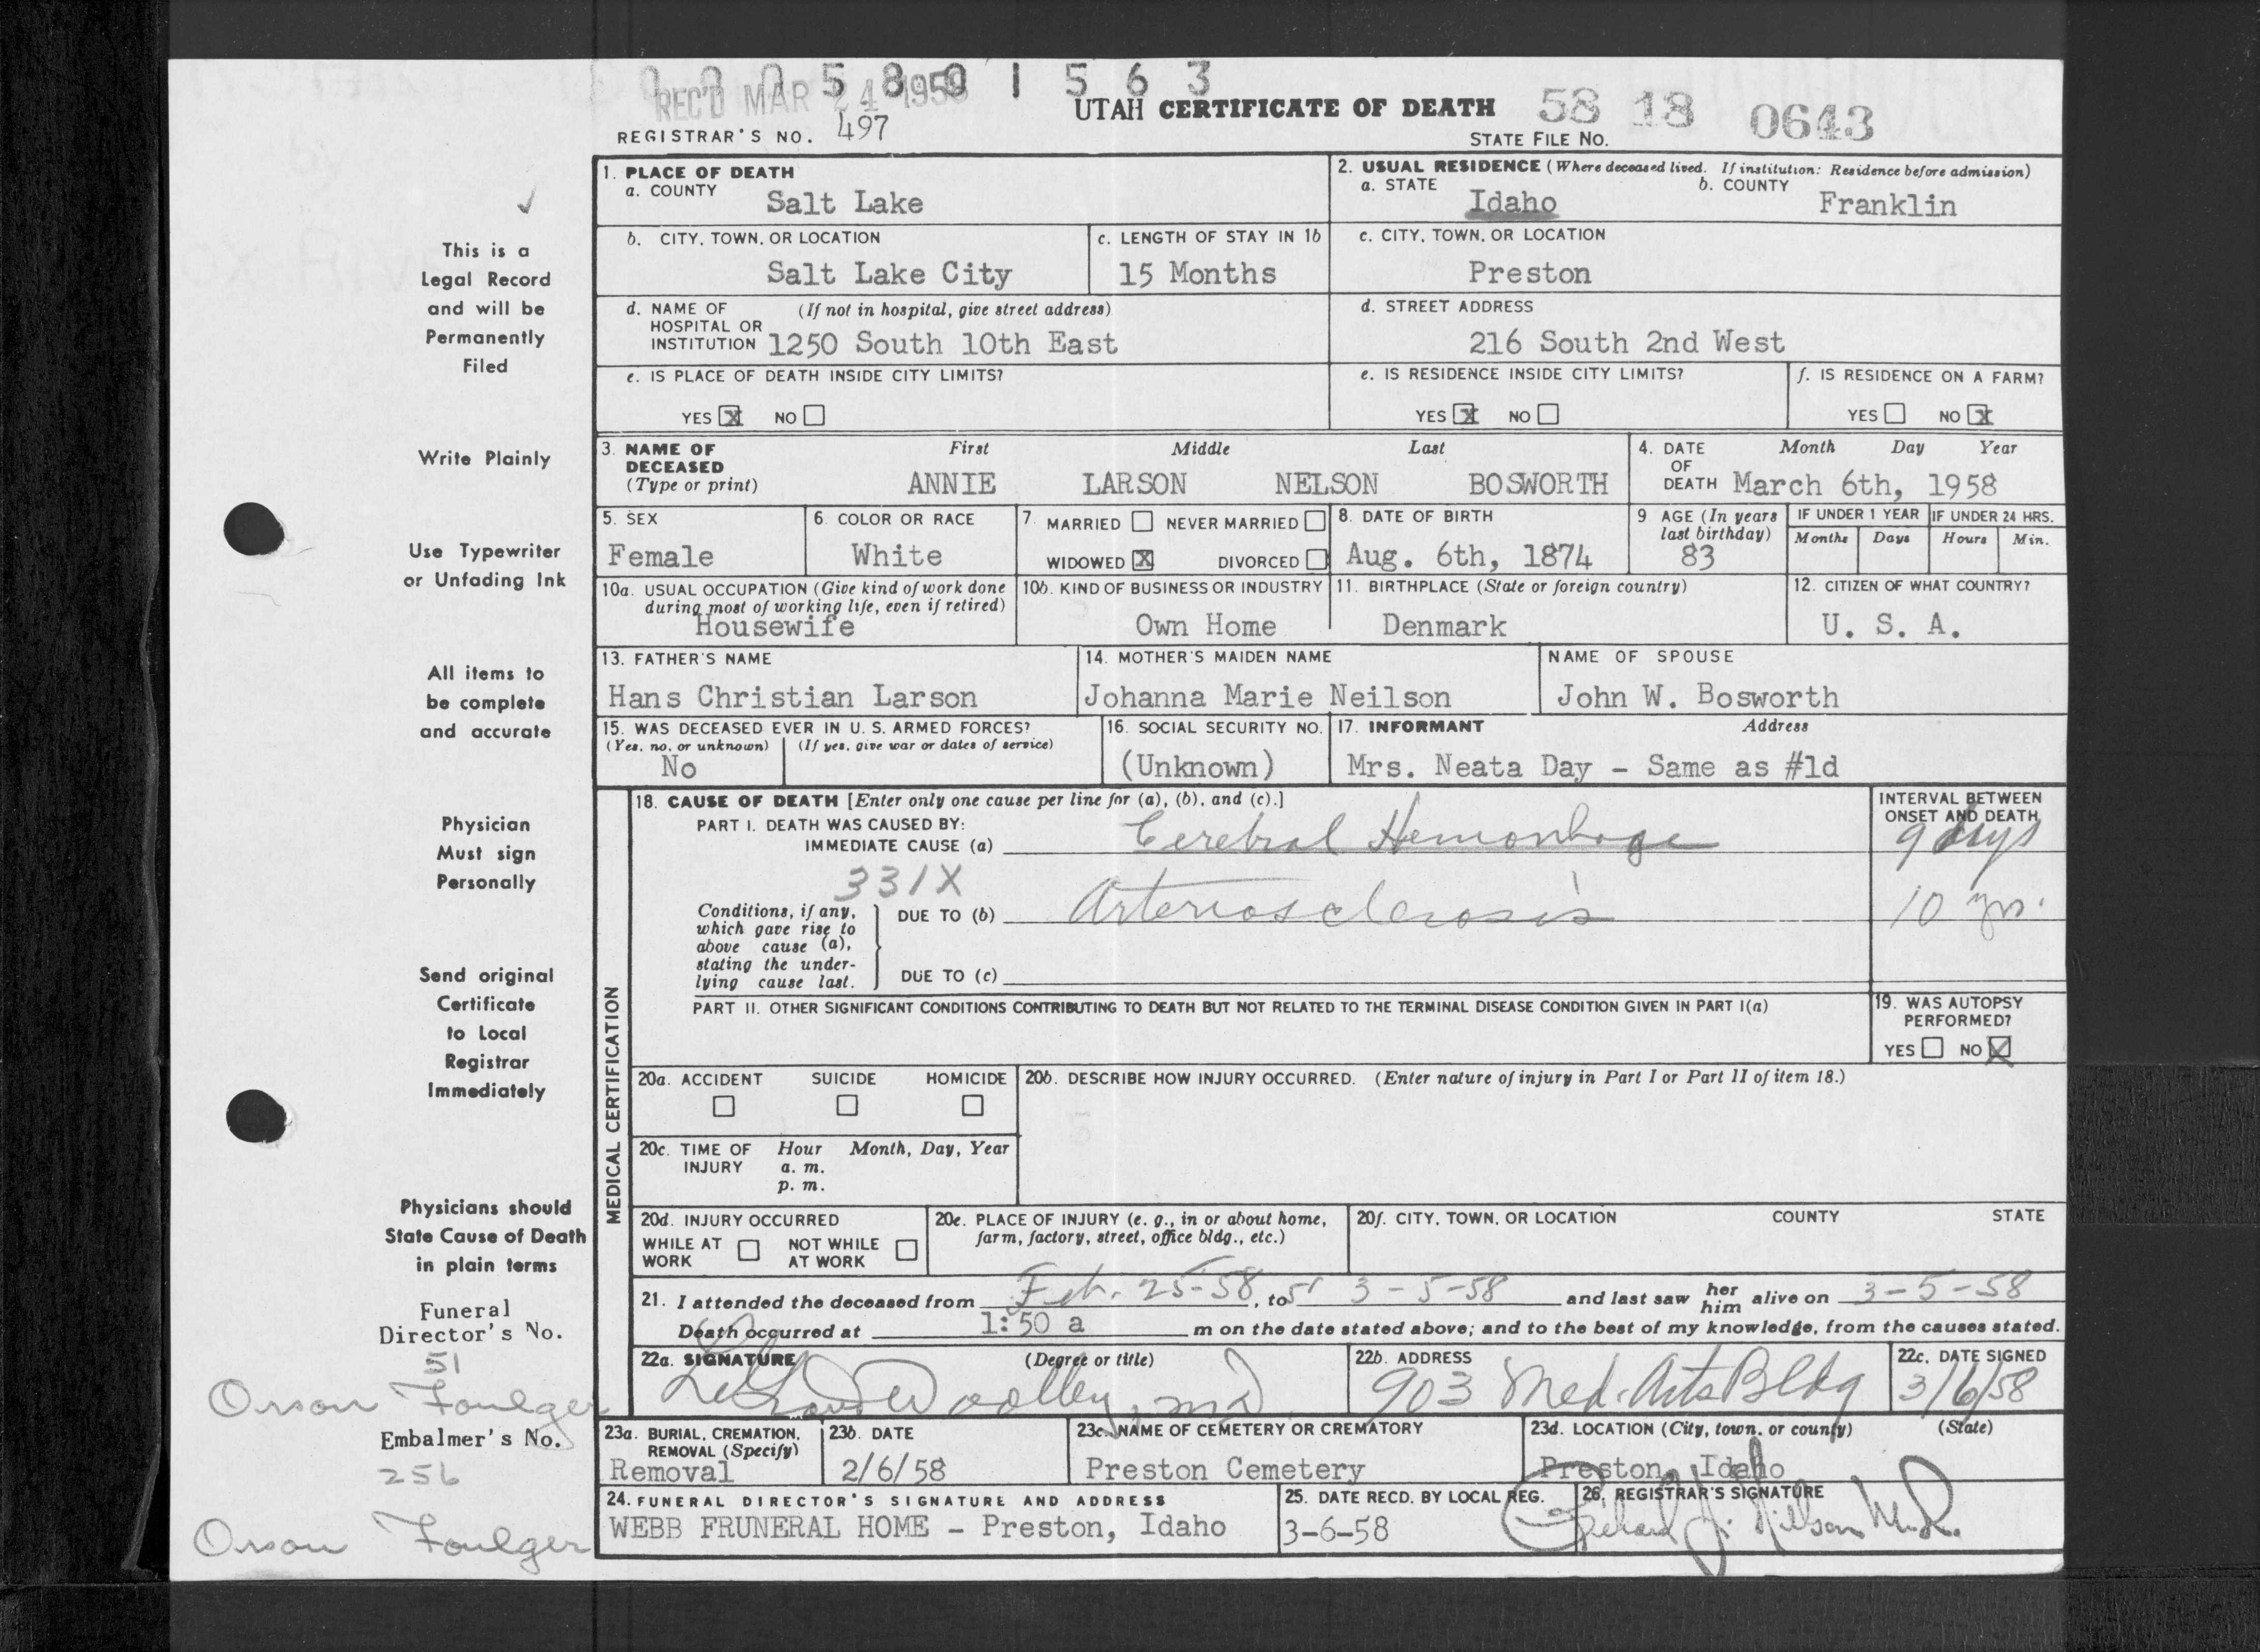 0 0 0 5 8 0 1 5 6 3
REC'D MAR 24 1958
UTAH CERTIFICATE OF DEATH 58 18 0643
REGISTRAR'S NO. 497 STATE FILE NO.
1. PLACE OF DEATH
a. COUNTY Salt Lake
2. USUAL RESIDENCE (Where deceased lived. If institution: Residence before admission)
a. STATE Idaho b. COUNTY Franklin
b. CITY, TOWN, OR LOCATION Salt Lake City
c. LENGTH OF STAY IN 1b 15 Months
c. CITY, TOWN, OR LOCATION Preston
d. NAME OF HOSPITAL OR INSTITUTION (If not in hospital, give street address) 1250 South 10th East
d. STREET ADDRESS 216 South 2nd West
e. IS PLACE OF DEATH INSIDE CITY LIMITS?
YES X NO
e. IS RESIDENCE INSIDE CITY LIMITS?
YES X NO
f. IS RESIDENCE ON A FARM?
YES NO X
3. NAME OF DECEASED (Type or print) First Middle Last
ANNIE LARSON NELSON BOSWORTH
4. DATE OF DEATH Month Day Year
March 6th, 1958
5. SEX Female
6. COLOR OR RACE White
7. MARRIED NEVER MARRIED
WIDOWED X DIVORCED
8. DATE OF BIRTH Aug. 6th, 1874
9 AGE (In years last birthday) 83
IF UNDER 1 YEAR Months Days
IF UNDER 24 HRS. Hours Min.
10a. USUAL OCCUPATION (Give kind of work done during most of working life, even if retired)
Housewife
10b. KIND OF BUSINESS OR INDUSTRY Own Home
11. BIRTHPLACE (State or foreign country) Denmark
12. CITIZEN OF WHAT COUNTRY? U. S. A.
13. FATHER'S NAME Hans Christian Larson
14. MOTHER'S MAIDEN NAME Johanna Marie Neilson
NAME OF SPOUSE John W. Bosworth
15. WAS DECEASED EVER IN U. S. ARMED FORCES?
(Yes, no, or unknown) (If yes, give war or dates of service)
No
16. SOCIAL SECURITY NO. (Unknown)
17. INFORMANT Address
Mrs. Neata Day - Same as #1d
MEDICAL CERTIFICATION
18. CAUSE OF DEATH [Enter only one cause per line for (a), (b), and (c).]
INTERVAL BETWEEN ONSET AND DEATH
PART I. DEATH WAS CAUSED BY:
IMMEDIATE CAUSE (a) Cerebral Hemorrhage 9 days
331X
Conditions, if any, which gave rise to above cause (a), stating the underlying cause last.
DUE TO (b) Arteriosclerosis 10 yrs.
DUE TO (c)
PART II. OTHER SIGNIFICANT CONDITIONS CONTRIBUTING TO DEATH BUT NOT RELATED TO THE TERMINAL DISEASE CONDITION GIVEN IN PART I(a)
19. WAS AUTOPSY PERFORMED?
YES NO X
20a. ACCIDENT SUICIDE HOMICIDE
20b. DESCRIBE HOW INJURY OCCURRED. (Enter nature of injury in Part I or Part II of item 18.)
20c. TIME OF INJURY Hour Month, Day, Year
a. m.
p. m.
20d. INJURY OCCURRED
WHILE AT WORK NOT WHILE AT WORK
20e. PLACE OF INJURY (e. g., in or about home, farm, factory, street, office bldg., etc.)
20f. CITY, TOWN, OR LOCATION COUNTY STATE
21. I attended the deceased from Feb. 25-58, to 3-5-58 and last saw her him alive on 3-5-58
Death occurred at 1:50 a m on the date stated above; and to the best of my knowledge, from the causes stated.
22a. SIGNATURE (Degree or title)
Woolley, MD
22b. ADDRESS 903 Med. Arts Bldg
22c. DATE SIGNED 3/6/58
23a. BURIAL, CREMATION, REMOVAL (Specify) Removal
23b. DATE 2/6/58
23c. NAME OF CEMETERY OR CREMATORY Preston Cemetery
23d. LOCATION (City, town, or county) (State)
Preston, Idaho
24. FUNERAL DIRECTOR'S SIGNATURE AND ADDRESS
WEBB FRUNERAL HOME - Preston, Idaho
25. DATE RECD. BY LOCAL REG. 3-6-58
26. REGISTRAR'S SIGNATURE
This is a
Legal Record
and will be
Permanently
Filed
Write Plainly
Use Typewriter
or Unfading Ink
All items to
be complete
and accurate
Physician
Must sign
Personally
Send original
Certificate
to Local
Registrar
Immediately
Physicians should
State Cause of Death
in plain terms
Funeral
Director's No.
51
Orson Foulger
Embalmer's No.
256
Orson Foulger